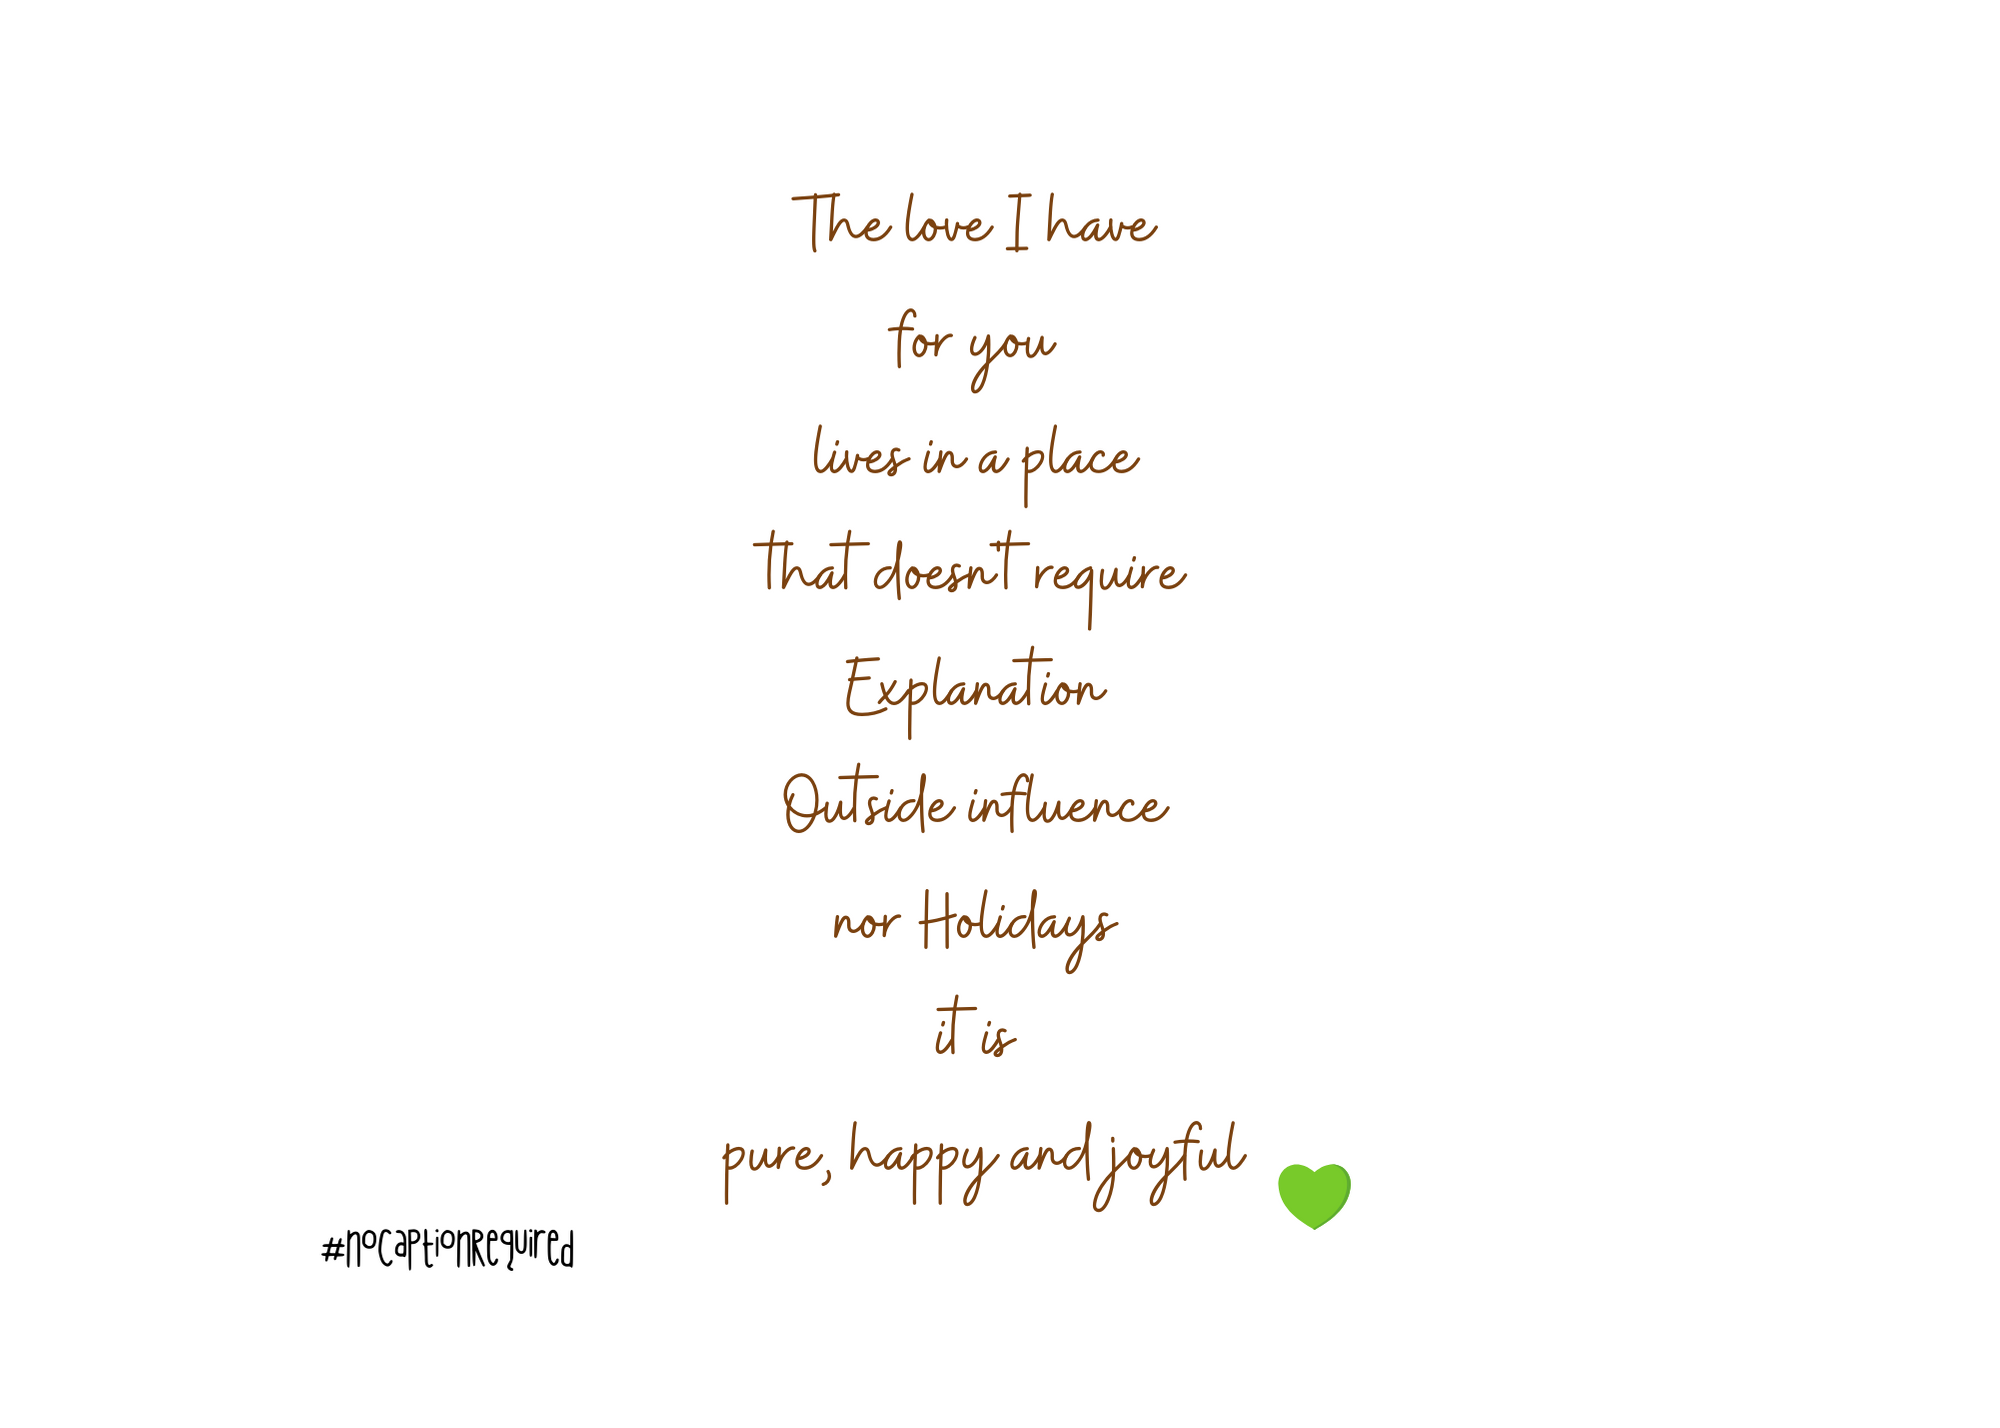 The love I have
for you
lives in a place
that doesn't require
Explanation
Outside influence
nor Holidays
it is
pure, happy and joyful
#nocaptionRequired